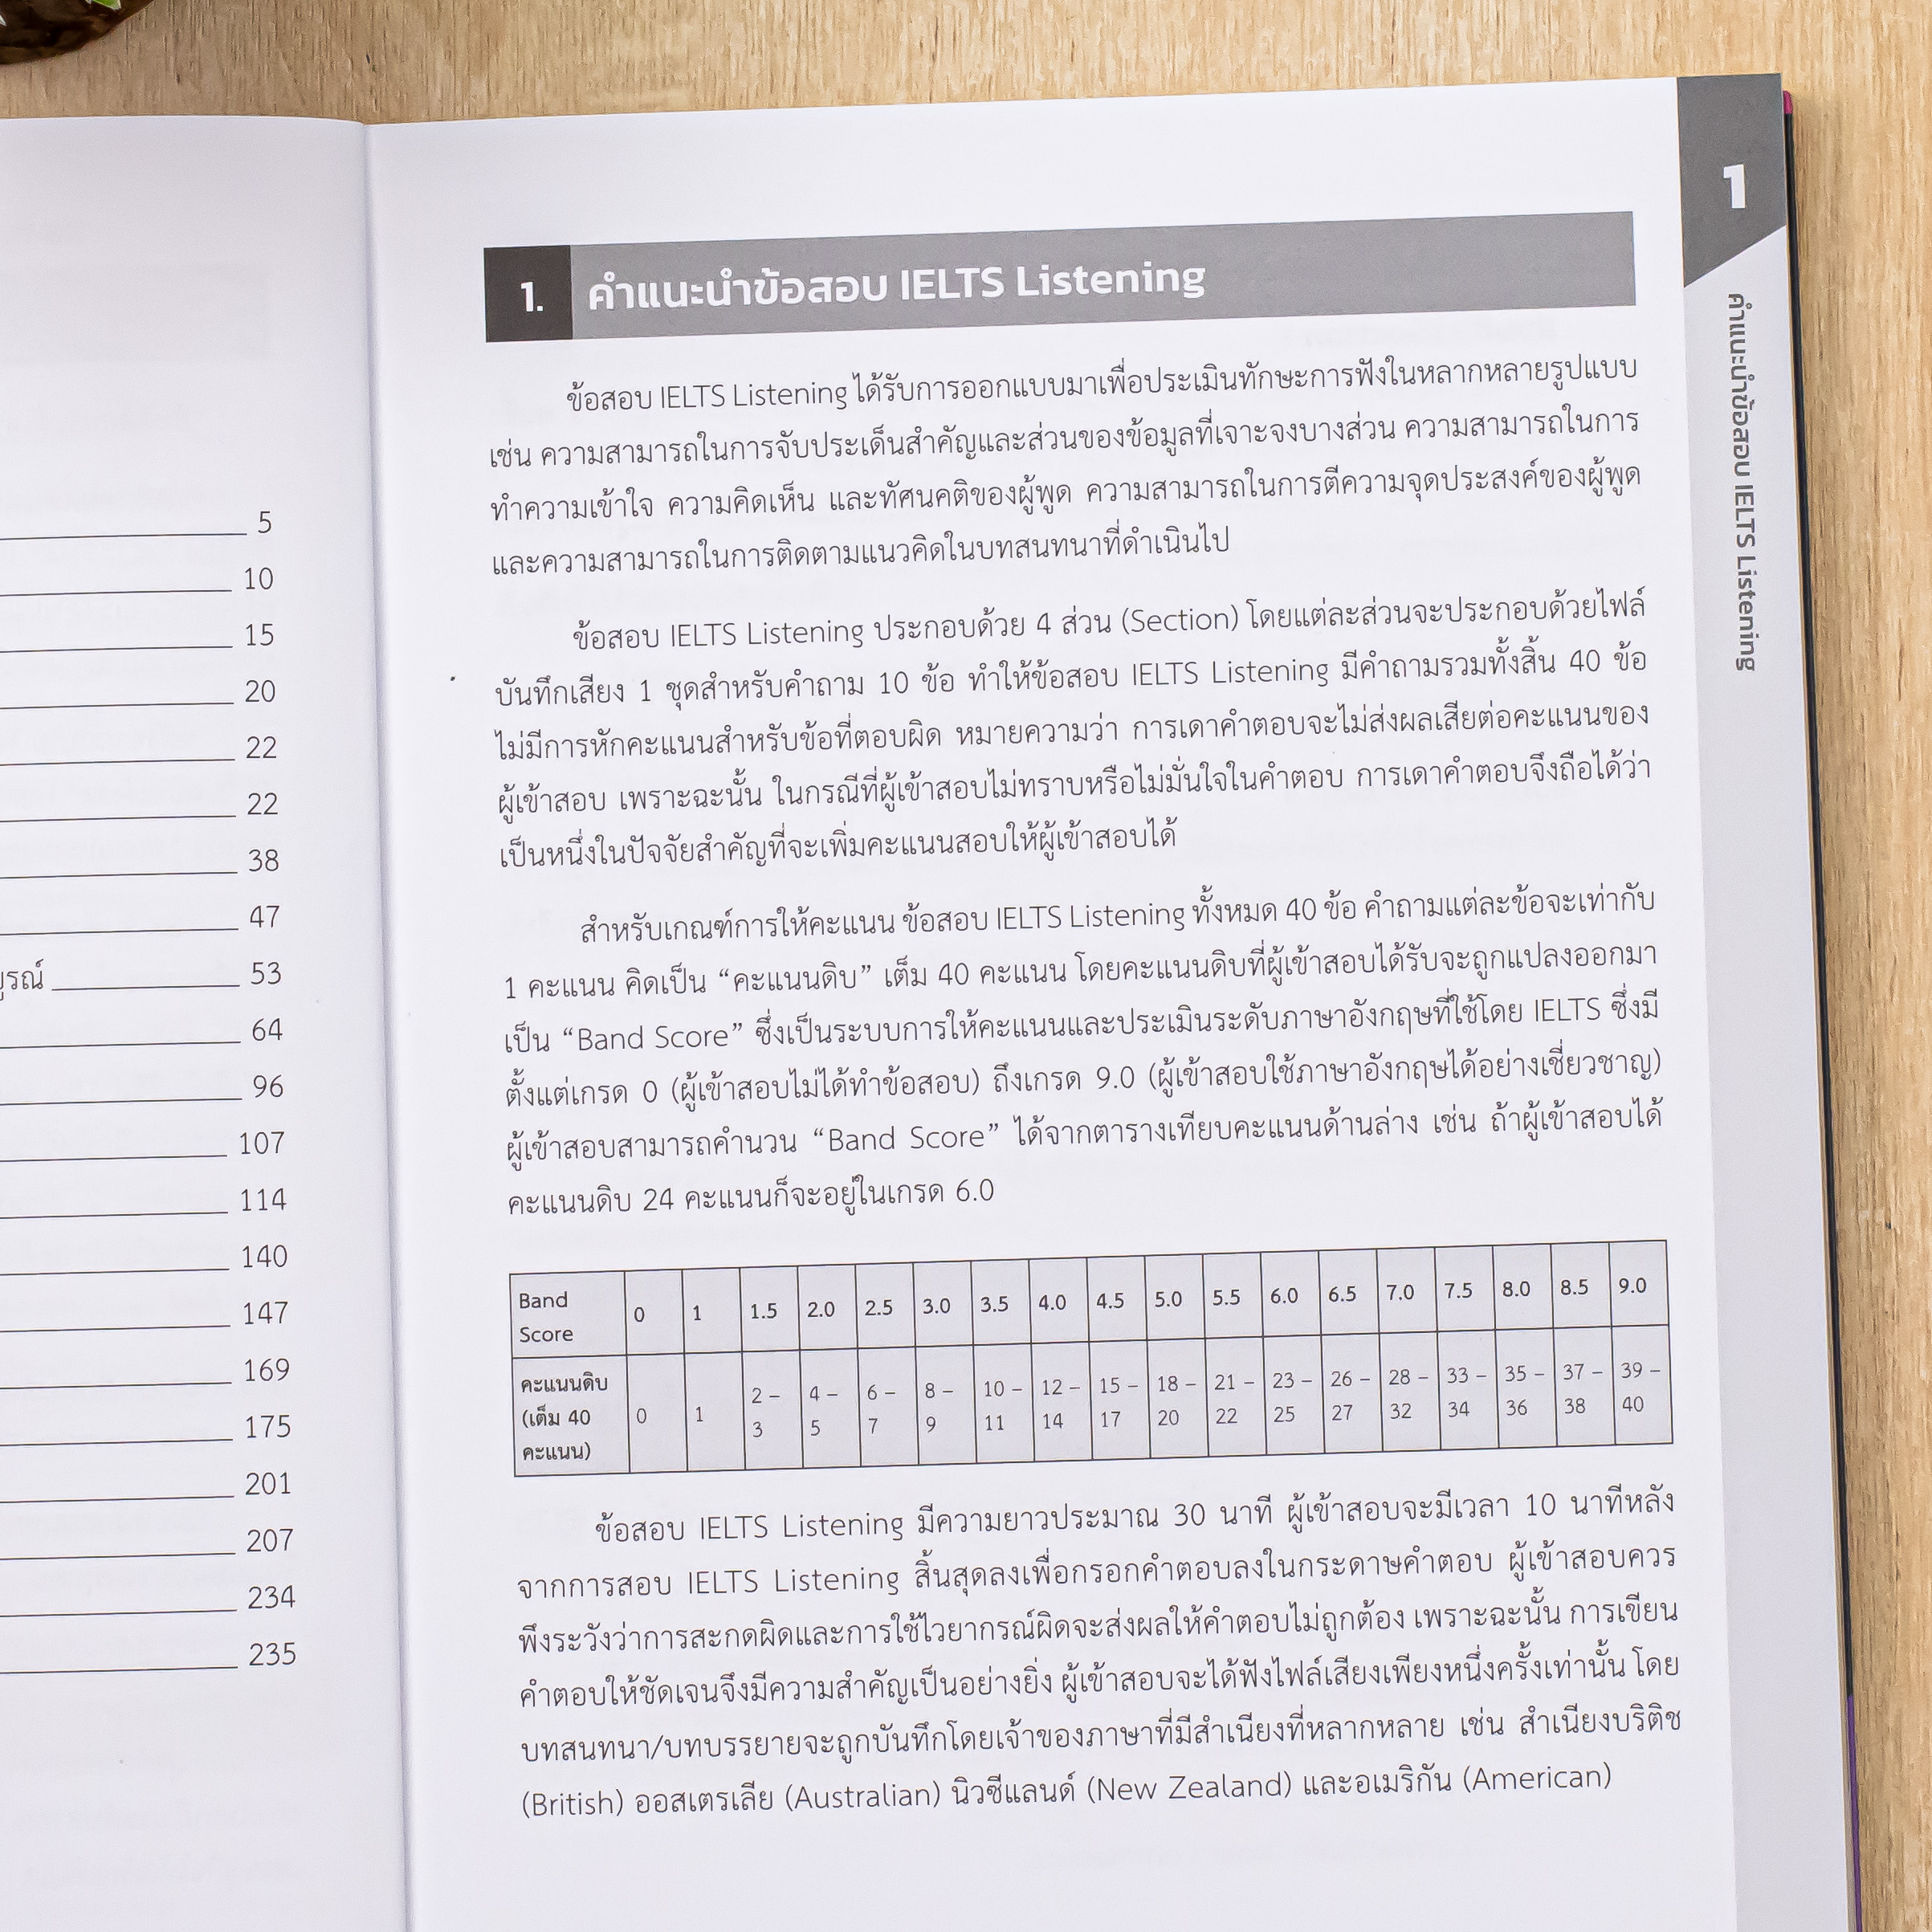 5
10
15
20
22
22
38
47
53
64
96
107
114
140
147
169
175
201
207
234
235
1
คำแนะนำข้อสอบ IELTS Listening
1. คำแนะนำข้อสอบ IELTS Listening
ข้อสอบ IELTS Listening ได้รับการออกแบบมาเพื่อประเมินทักษะการฟังในหลากหลายรูปแบบ
เช่น ความสามารถในการจับประเด็นสำคัญและส่วนของข้อมูลที่เจาะจงบางส่วน ความสามารถในการ
ทำความเข้าใจ ความคิดเห็น และทัศนคติของผู้พูด ความสามารถในการตีความจุดประสงค์ของผู้พูด
และความสามารถในการติดตามแนวคิดในบทสนทนาที่ดำเนินไป
ข้อสอบ IELTS Listening ประกอบด้วย 4 ส่วน (Section) โดยแต่ละส่วนจะประกอบด้วยไฟล์
บันทึกเสียง 1 ชุดสำหรับคำถาม 10 ข้อ ทำให้ข้อสอบ IELTS Listening มีคำถามรวมทั้งสิ้น 40 ข้อ
ไม่มีการหักคะแนนสำหรับข้อที่ตอบผิด หมายความว่า การเดาคำตอบจะไม่ส่งผลเสียต่อคะแนนของ
ผู้เข้าสอบ เพราะฉะนั้น ในกรณีที่ผู้เข้าสอบไม่ทราบหรือไม่มั่นใจในคำตอบ การเดาคำตอบจึงถือได้ว่า
เป็นหนึ่งในปัจจัยสำคัญที่จะเพิ่มคะแนนสอบให้ผู้เข้าสอบได้
สำหรับเกณฑ์การให้คะแนน ข้อสอบ IELTS Listening ทั้งหมด 40 ข้อ คำถามแต่ละข้อจะเท่ากับ
1 คะแนน คิดเป็น “คะแนนดิบ” เต็ม 40 คะแนน โดยคะแนนดิบที่ผู้เข้าสอบได้รับจะถูกแปลงออกมา
เป็น “Band Score” ซึ่งเป็นระบบการให้คะแนนและประเมินระดับภาษาอังกฤษที่ใช้โดย IELTS ซึ่งมี
ตั้งแต่เกรด 0 (ผู้เข้าสอบไม่ได้ทำข้อสอบ) ถึงเกรด 9.0 (ผู้เข้าสอบใช้ภาษาอังกฤษได้อย่างเชี่ยวชาญ)
ผู้เข้าสอบสามารถคำนวน “Band Score” ได้จากตารางเทียบคะแนนด้านล่าง เช่น ถ้าผู้เข้าสอบได้
คะแนนดิบ 24 คะแนนก็จะอยู่ในเกรด 6.0
Band Score 0 1 1.5 2.0 2.5 3.0 3.5 4.0 4.5 5.0 5.5 6.0 6.5 7.0 7.5 8.0 8.5 9.0
คะแนนดิบ (เต็ม 40 คะแนน) 0 1 2 – 3 4 – 5 6 – 7 8 – 9 10 – 11 12 – 14 15 – 17 18 – 20 21 – 22 23 – 25 26 – 27 28 – 32 33 – 34 35 – 36 37 – 38 39 – 40
ข้อสอบ IELTS Listening มีความยาวประมาณ 30 นาที ผู้เข้าสอบจะมีเวลา 10 นาทีหลัง
จากการสอบ IELTS Listening สิ้นสุดลงเพื่อกรอกคำตอบลงในกระดาษคำตอบ ผู้เข้าสอบควร
พึงระวังว่าการสะกดผิดและการใช้ไวยากรณ์ผิดจะส่งผลให้คำตอบไม่ถูกต้อง เพราะฉะนั้น การเขียน
คำตอบให้ชัดเจนจึงมีความสำคัญเป็นอย่างยิ่ง ผู้เข้าสอบจะได้ฟังไฟล์เสียงเพียงหนึ่งครั้งเท่านั้น โดย
บทสนทนา/บทบรรยายจะถูกบันทึกโดยเจ้าของภาษาที่มีสำเนียงที่หลากหลาย เช่น สำเนียงบริติช
(British) ออสเตรเลีย (Australian) นิวซีแลนด์ (New Zealand) และอเมริกัน (American)